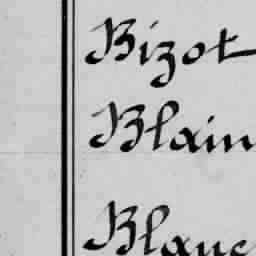 Bizot
Blain
Blanc